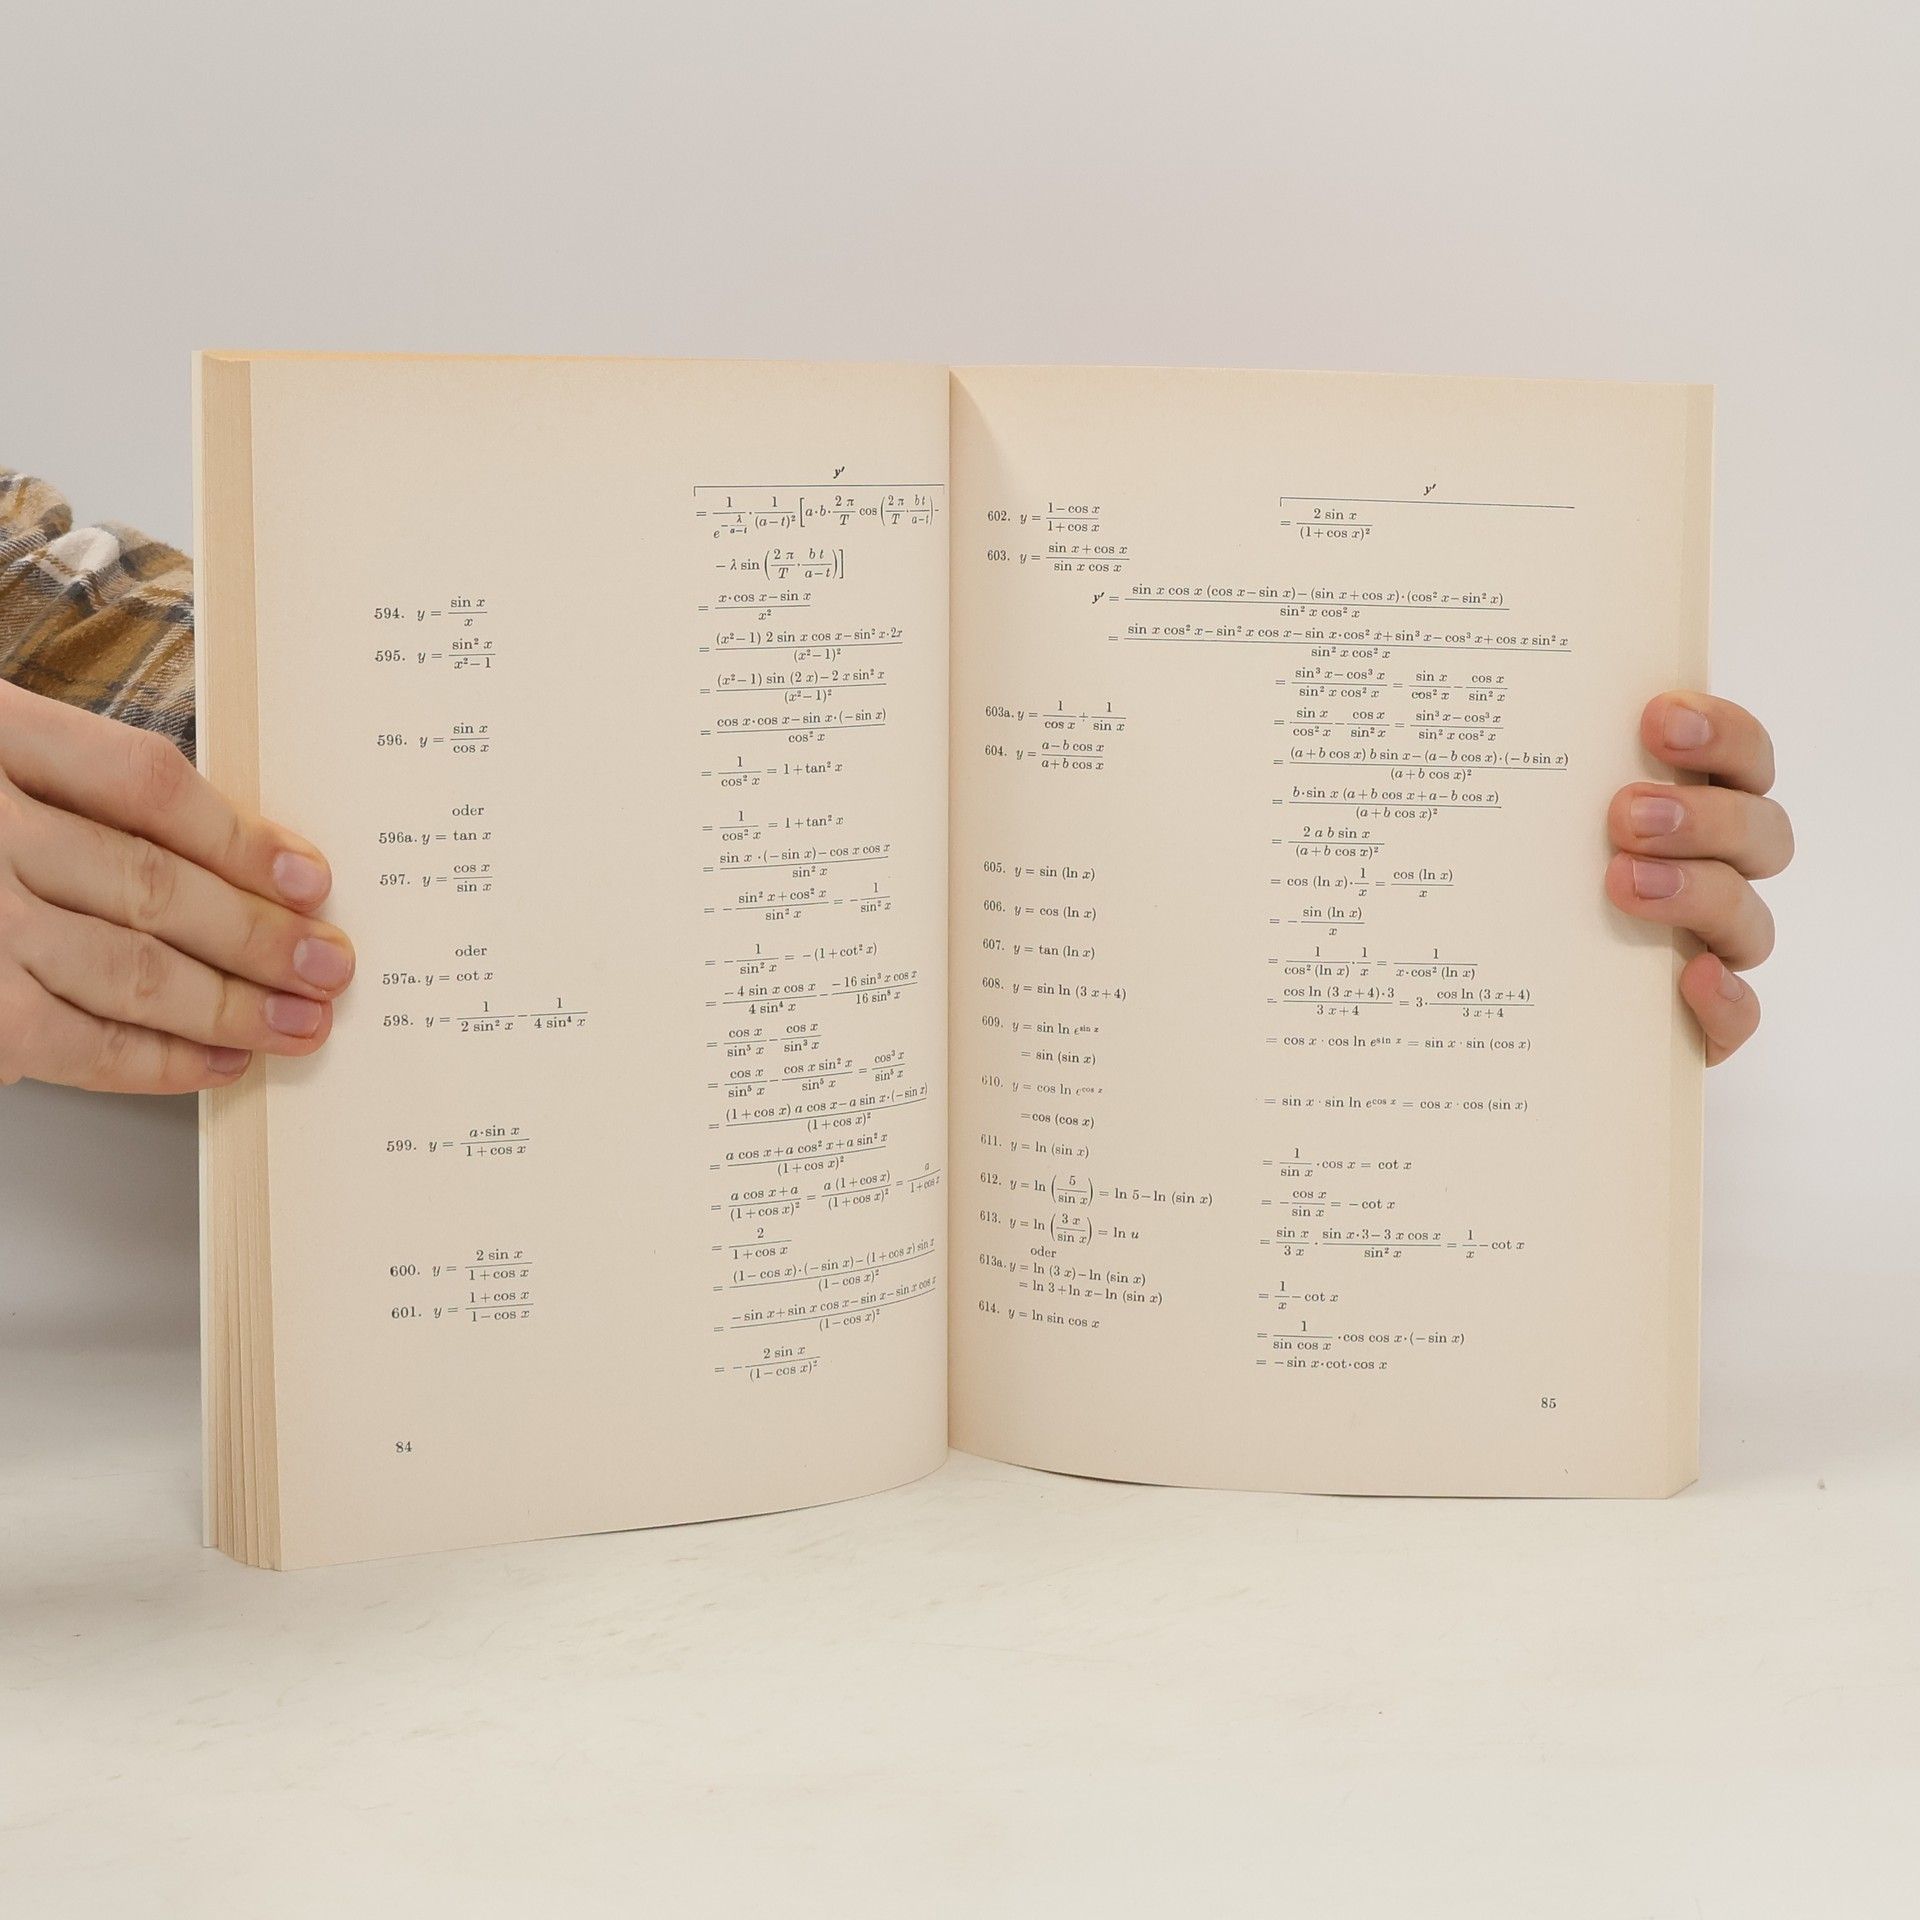 y′
= 1/e^(−λ/(a−t)) · 1/(a−t)² [a·b· 2π/T cos (2π/T · bt/(a−t)) -
− λ sin (2π/T · bt/(a−t))]
594. y = sin x / x = (x·cos x − sin x)/x²
595. y = sin² x/(x²−1) = ((x²−1) 2 sin x cos x − sin² x·2x)/(x²−1)²
= ((x²−1) sin (2 x) − 2 x sin² x)/(x²−1)²
596. y = sin x/cos x = (cos x·cos x − sin x·(−sin x))/cos² x
= 1/cos² x = 1 + tan² x
oder
596a. y = tan x = 1/cos² x = 1 + tan² x
597. y = cos x/sin x = (sin x ·(−sin x) − cos x cos x)/sin² x
= − (sin² x + cos² x)/sin² x = − 1/sin² x
oder
597a. y = cot x = − 1/sin² x = −(1 + cot² x)
598. y = 1/(2 sin² x) − 1/(4 sin⁴ x) = (−4 sin x cos x)/(4 sin⁴ x) − (−16 sin³ x cos x)/(16 sin⁸ x)
= cos x/sin⁵ x − cos x/sin³ x
= cos x/sin⁵ x − cos x sin² x/sin⁵ x = cos³ x/sin⁵ x
599. y = a·sin x/(1 + cos x) = ((1 + cos x) a cos x − a sin x·(−sin x))/(1 + cos x)²
= (a cos x + a cos² x + a sin² x)/(1 + cos x)²
= (a cos x + a)/(1 + cos x)² = a (1 + cos x)/(1 + cos x)² = a/(1 + cos x)
600. y = 2 sin x/(1 + cos x) = 2/(1 + cos x)
601. y = (1 + cos x)/(1 − cos x) = ((1 − cos x)·(−sin x) − (1 + cos x) sin x)/(1 − cos x)²
= (−sin x + sin x cos x − sin x − sin x cos x)/(1 − cos x)²
= − 2 sin x/(1 − cos x)²
84
y′
602. y = (1 − cos x)/(1 + cos x) = 2 sin x/(1 + cos x)²
603. y = (sin x + cos x)/(sin x cos x)
y′ = (sin x cos x (cos x − sin x) − (sin x + cos x)·(cos² x − sin² x))/(sin² x cos² x)
= (sin x cos² x − sin² x cos x − sin x·cos² x + sin³ x − cos³ x + cos x sin² x)/(sin² x cos² x)
= (sin³ x − cos³ x)/(sin² x cos² x) = sin x/cos² x − cos x/sin² x
603a. y = 1/cos x + 1/sin x = sin x/cos² x − cos x/sin² x = (sin³ x − cos³ x)/(sin² x cos² x)
604. y = (a − b cos x)/(a + b cos x) = ((a + b cos x) b sin x − (a − b cos x)·(−b sin x))/(a + b cos x)²
= b·sin x (a + b cos x + a − b cos x)/(a + b cos x)²
= 2 a b sin x/(a + b cos x)²
605. y = sin (ln x) = cos (ln x)· 1/x = cos (ln x)/x
606. y = cos (ln x) = − sin (ln x)/x
607. y = tan (ln x) = 1/cos² (ln x) · 1/x = 1/(x·cos² (ln x))
608. y = sin ln (3 x + 4) = (cos ln (3 x + 4)·3)/(3 x + 4) = 3· cos ln (3 x + 4)/(3 x + 4)
609. y = sin ln e^(sin x) = cos x · cos ln e^(sin x) = sin x · sin (cos x)
= sin (sin x)
610. y = cos ln e^(cos x) = sin x · sin ln e^(cos x) = cos x · cos (sin x)
= cos (cos x)
611. y = ln (sin x) = 1/sin x · cos x = cot x
612. y = ln (5/sin x) = ln 5 − ln (sin x) = − cos x/sin x = − cot x
613. y = ln (3 x/sin x) = ln u = sin x/3 x · (sin x·3 − 3 x cos x)/sin² x = 1/x − cot x
oder
613a. y = ln (3 x) − ln (sin x)
= ln 3 + ln x − ln (sin x) = 1/x − cot x
614. y = ln sin cos x = 1/sin cos x · cos cos x·(−sin x)
= −sin x·cot·cos x
85